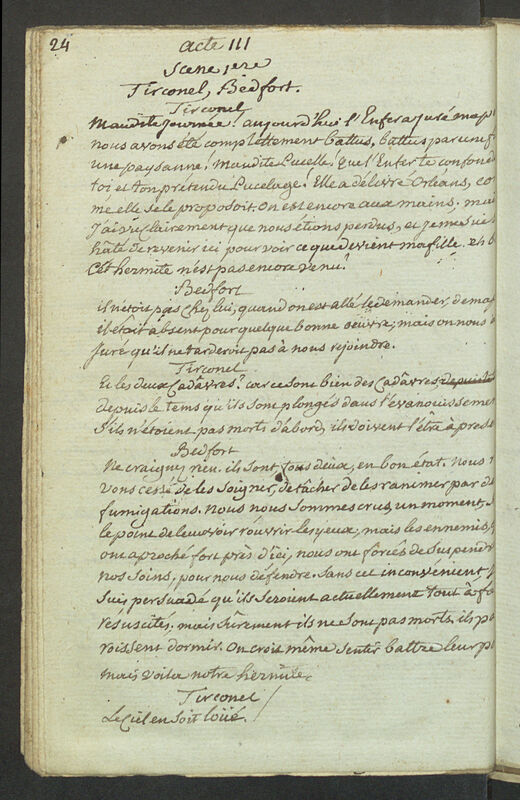 24
acte III
Scene 1ere
Tirconel, Bedfort.
Tirconel
Maudite journée! aujourd'hui l'Enfer a juré ma p
nous avons été complettement battus, battus par un
une paysanne. Maudite Pucelle, que l'Enfer te confond
toi et ton prétendu Pucelage! Elle a délivré Orléans, co
me elle se le proposoit. On est encore aux mains. mai
J'ai vu clairement que nous étions perdus, et je me suis
hâté de revenir ici pour voir ce que devient ma fille. eh b
Cet hermite n'est pas encore venu?
Bedfort
il n'étoit pas chez lui, quand on est allé le demander, de ma
il était absent pour quelque bonne oeuvre, mais on nous a
Juré qu'il ne tarderoit pas à nous rejoindre.
Tirconel
Et les deux Cadâvres? car ce sont bien des Cadâvres, depuis
depuis le tems qu'ils sont plongés dans l'évanouissemen
S'ils n'étoient pas morts d'abord, ils doivent l'être à prese
Bedfort
Ne craignez rien. ils sont tous deux, en bon état. Nous n'
vons cessé de les soigner, de tâcher de les ranimer par de
fumigations. Nous nous sommes crus, un moment, s
le point de leur voir r'ouvrir les yeux, mais les ennemis,
ont aproché fort près d'ici, nous ont forcés de suspendr
nos soins, pour nous défendre. Sans cet inconvénient, J
suis persuadé qu'ils seroient actuellement tout à fa
résuscités. mais sûrement ils ne sont pas morts, ils pa
roissent dormir. On croit même sentir battre leur po
mais voila notre hermite.
Tirconel
Le Ciel en soit loüé.